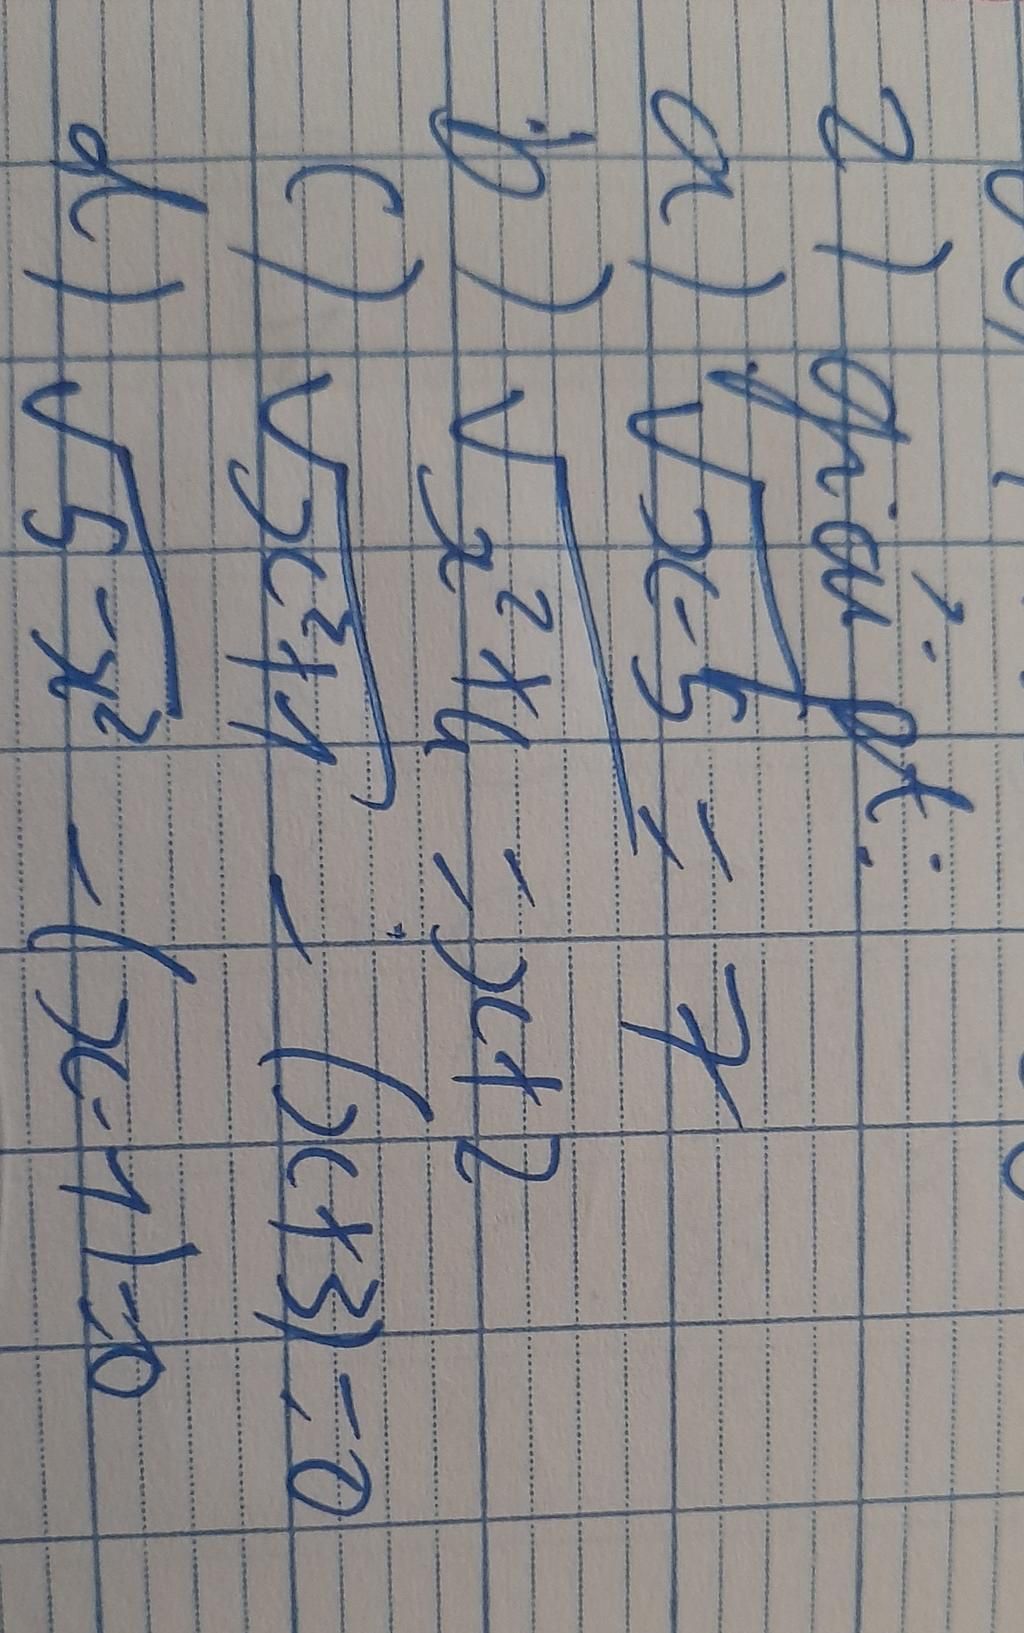 2) giải pt:
a) √x-5 = 7
b) √x²+4 = x+2
c) √x²+1 - (x+3) = 0
d) √5-x² - (x-1) = 0